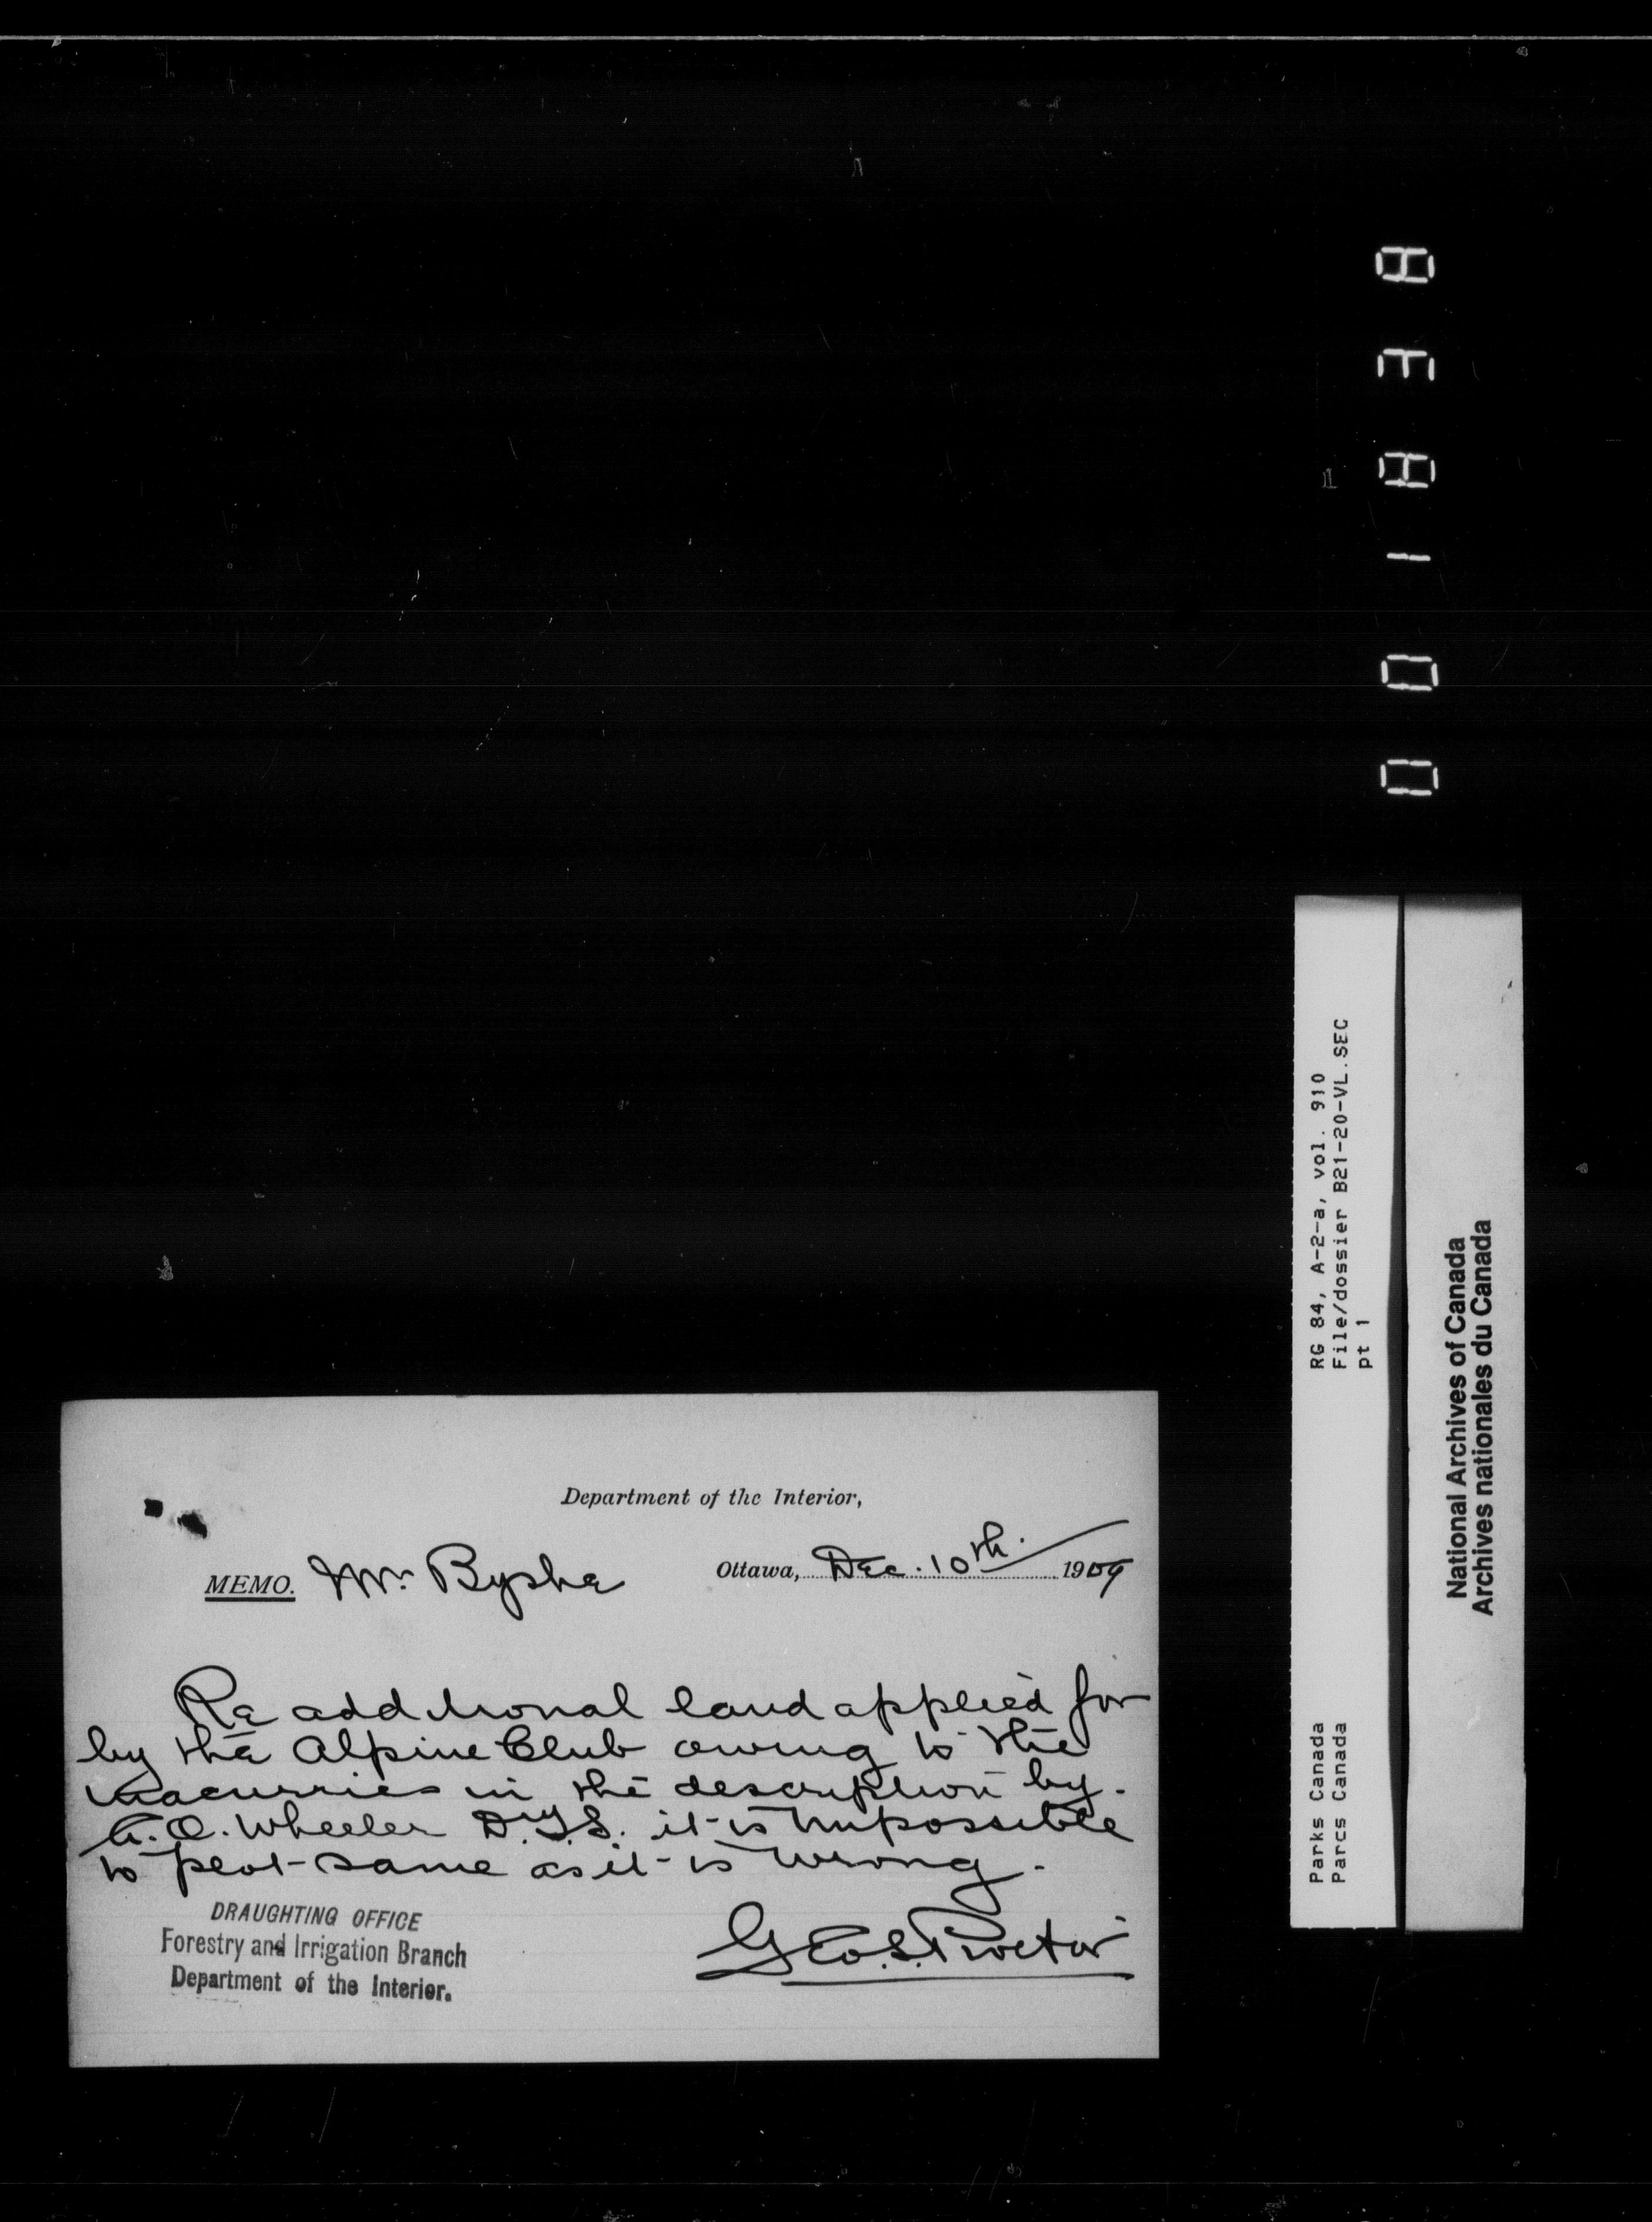 Department of the Interior,
MEMO. Mr. Byshe Ottawa, Dec. 10th. 1909
Re additional land applied for
by the Alpine Club owing to the
inacurries in the description by.
A.O. Wheeler D.L.S. it is impossible
to plot same as it is wrong.
Geo.S.Proctor
DRAUGHTING OFFICE
Forestry and Irrigation Branch
Department of the Interior.
RG 84, A-2-a, vol. 910
File/dossier B21-20-VL.SEC
pt 1
Parks Canada
Parcs Canada
National Archives of Canada
Archives nationales du Canada